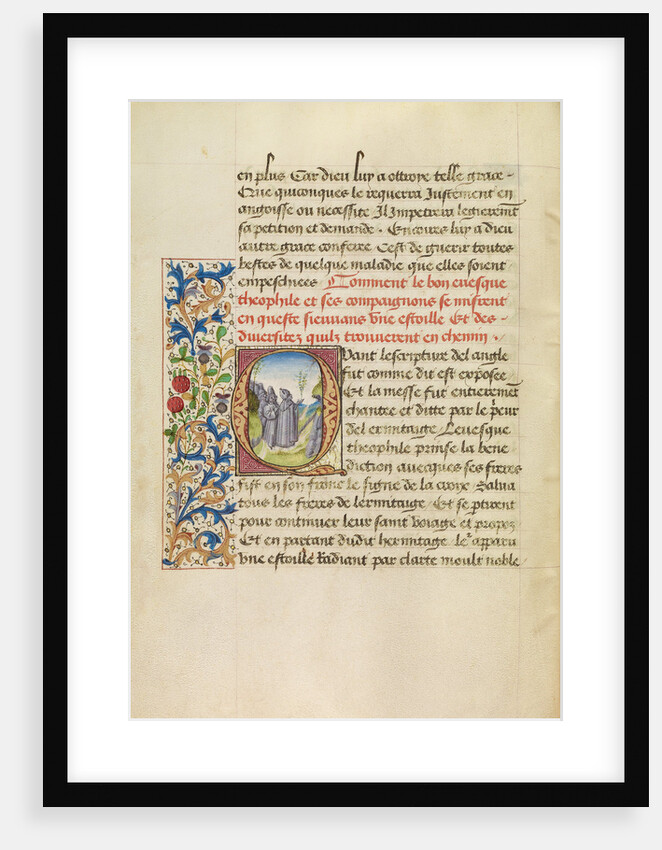 en plus Car dieu luy a ottroye telle grace -
Que quiconques le requerra Justement en
angoisse ou necessite Il Impetrera legierement
sa petition et demande . Encores luy a dieu
autre grace conferee Cest de guerir toutes
bestes de quelque maladie que elles soient
empeschiees Comment le bon evesque
theophile et ses compaignons se misrent
en queste sieuvans Une estoille Et des-
diversitez quilz trouverent en chemin .
Quant lescripture del angle
fut comme dit est exposee
Et la messe fut entierement
chantee et ditte par le prieur
del ermitaige Levesque
theophile prinse la bene
diction avecques ses freres
fist en son frone le signe de la croix Salua
tous les freres de lermitaige Et se partirent
pour continuer leur saint voiage et propoz
Et en partant dudit hermitage le² apparu
Une estoille Radiant par clarte moult noble